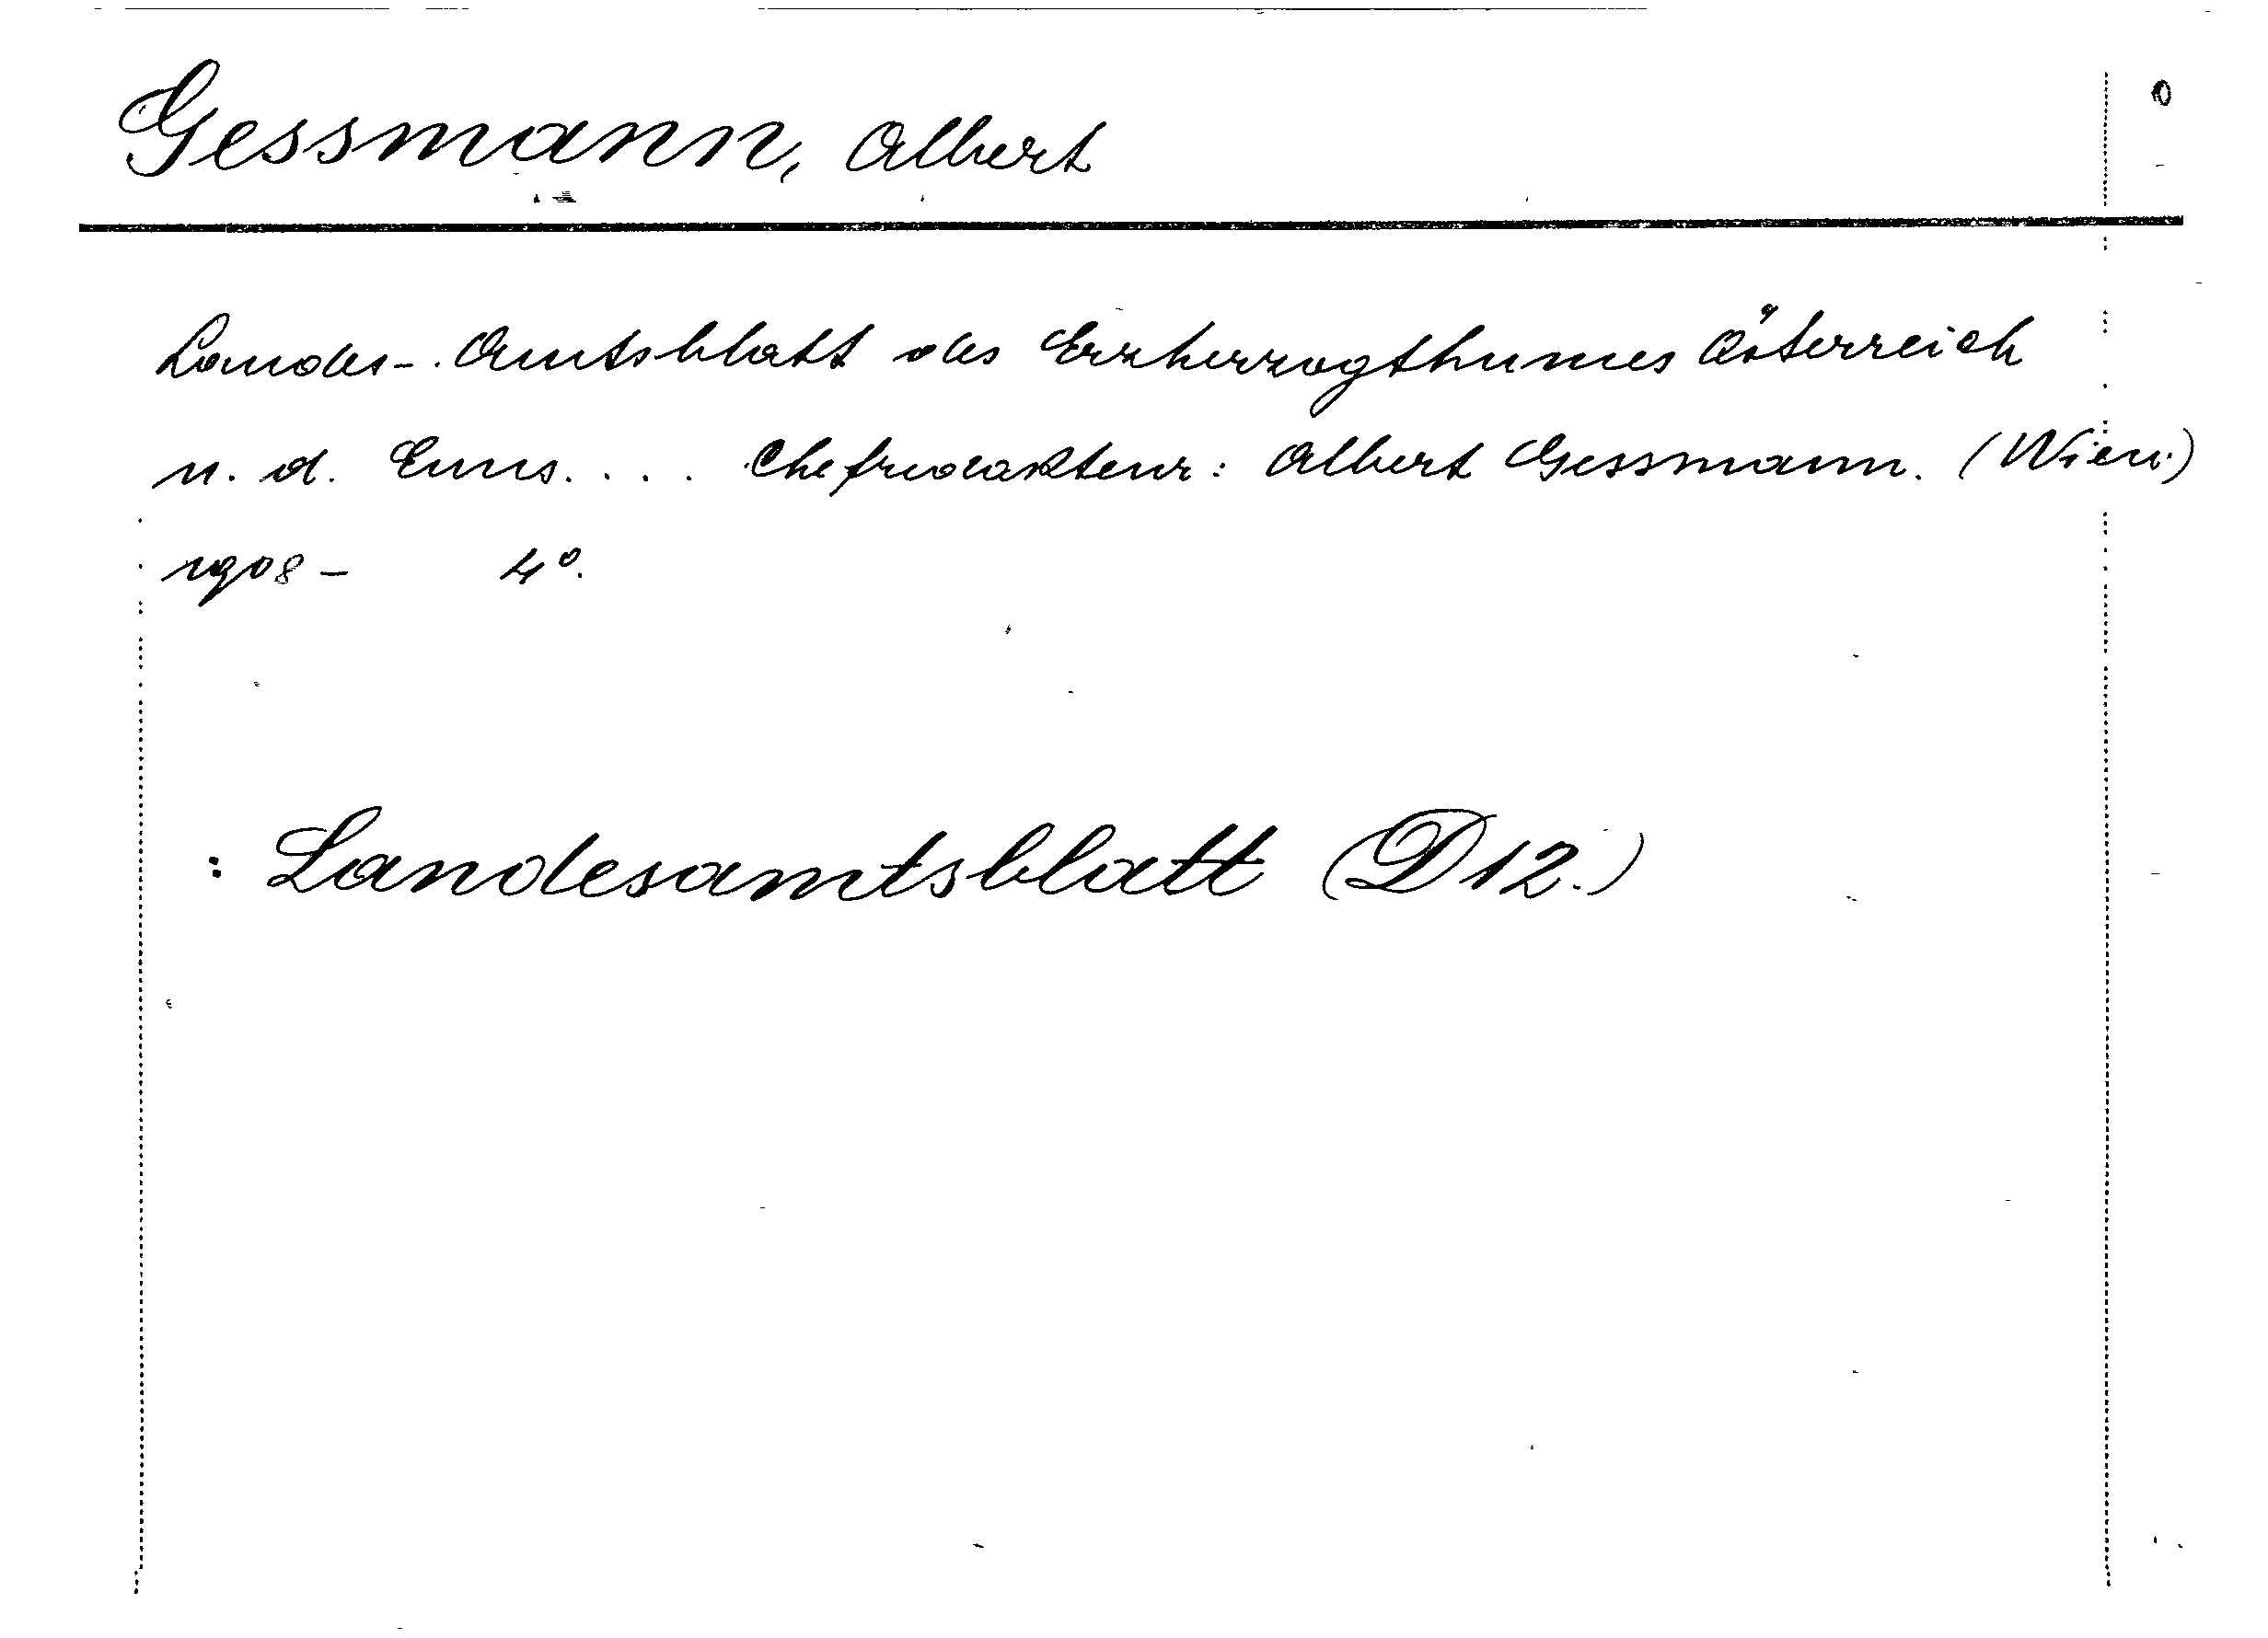 Gessmann, Albert
Landes-Amtsblatt des Erzherzogthumes Österreich
u. d. Enns.... Chefredakteur: Albert Gessmann. (Wien.)
1908 - 4°.
: Landesamtsblatt (D12.)